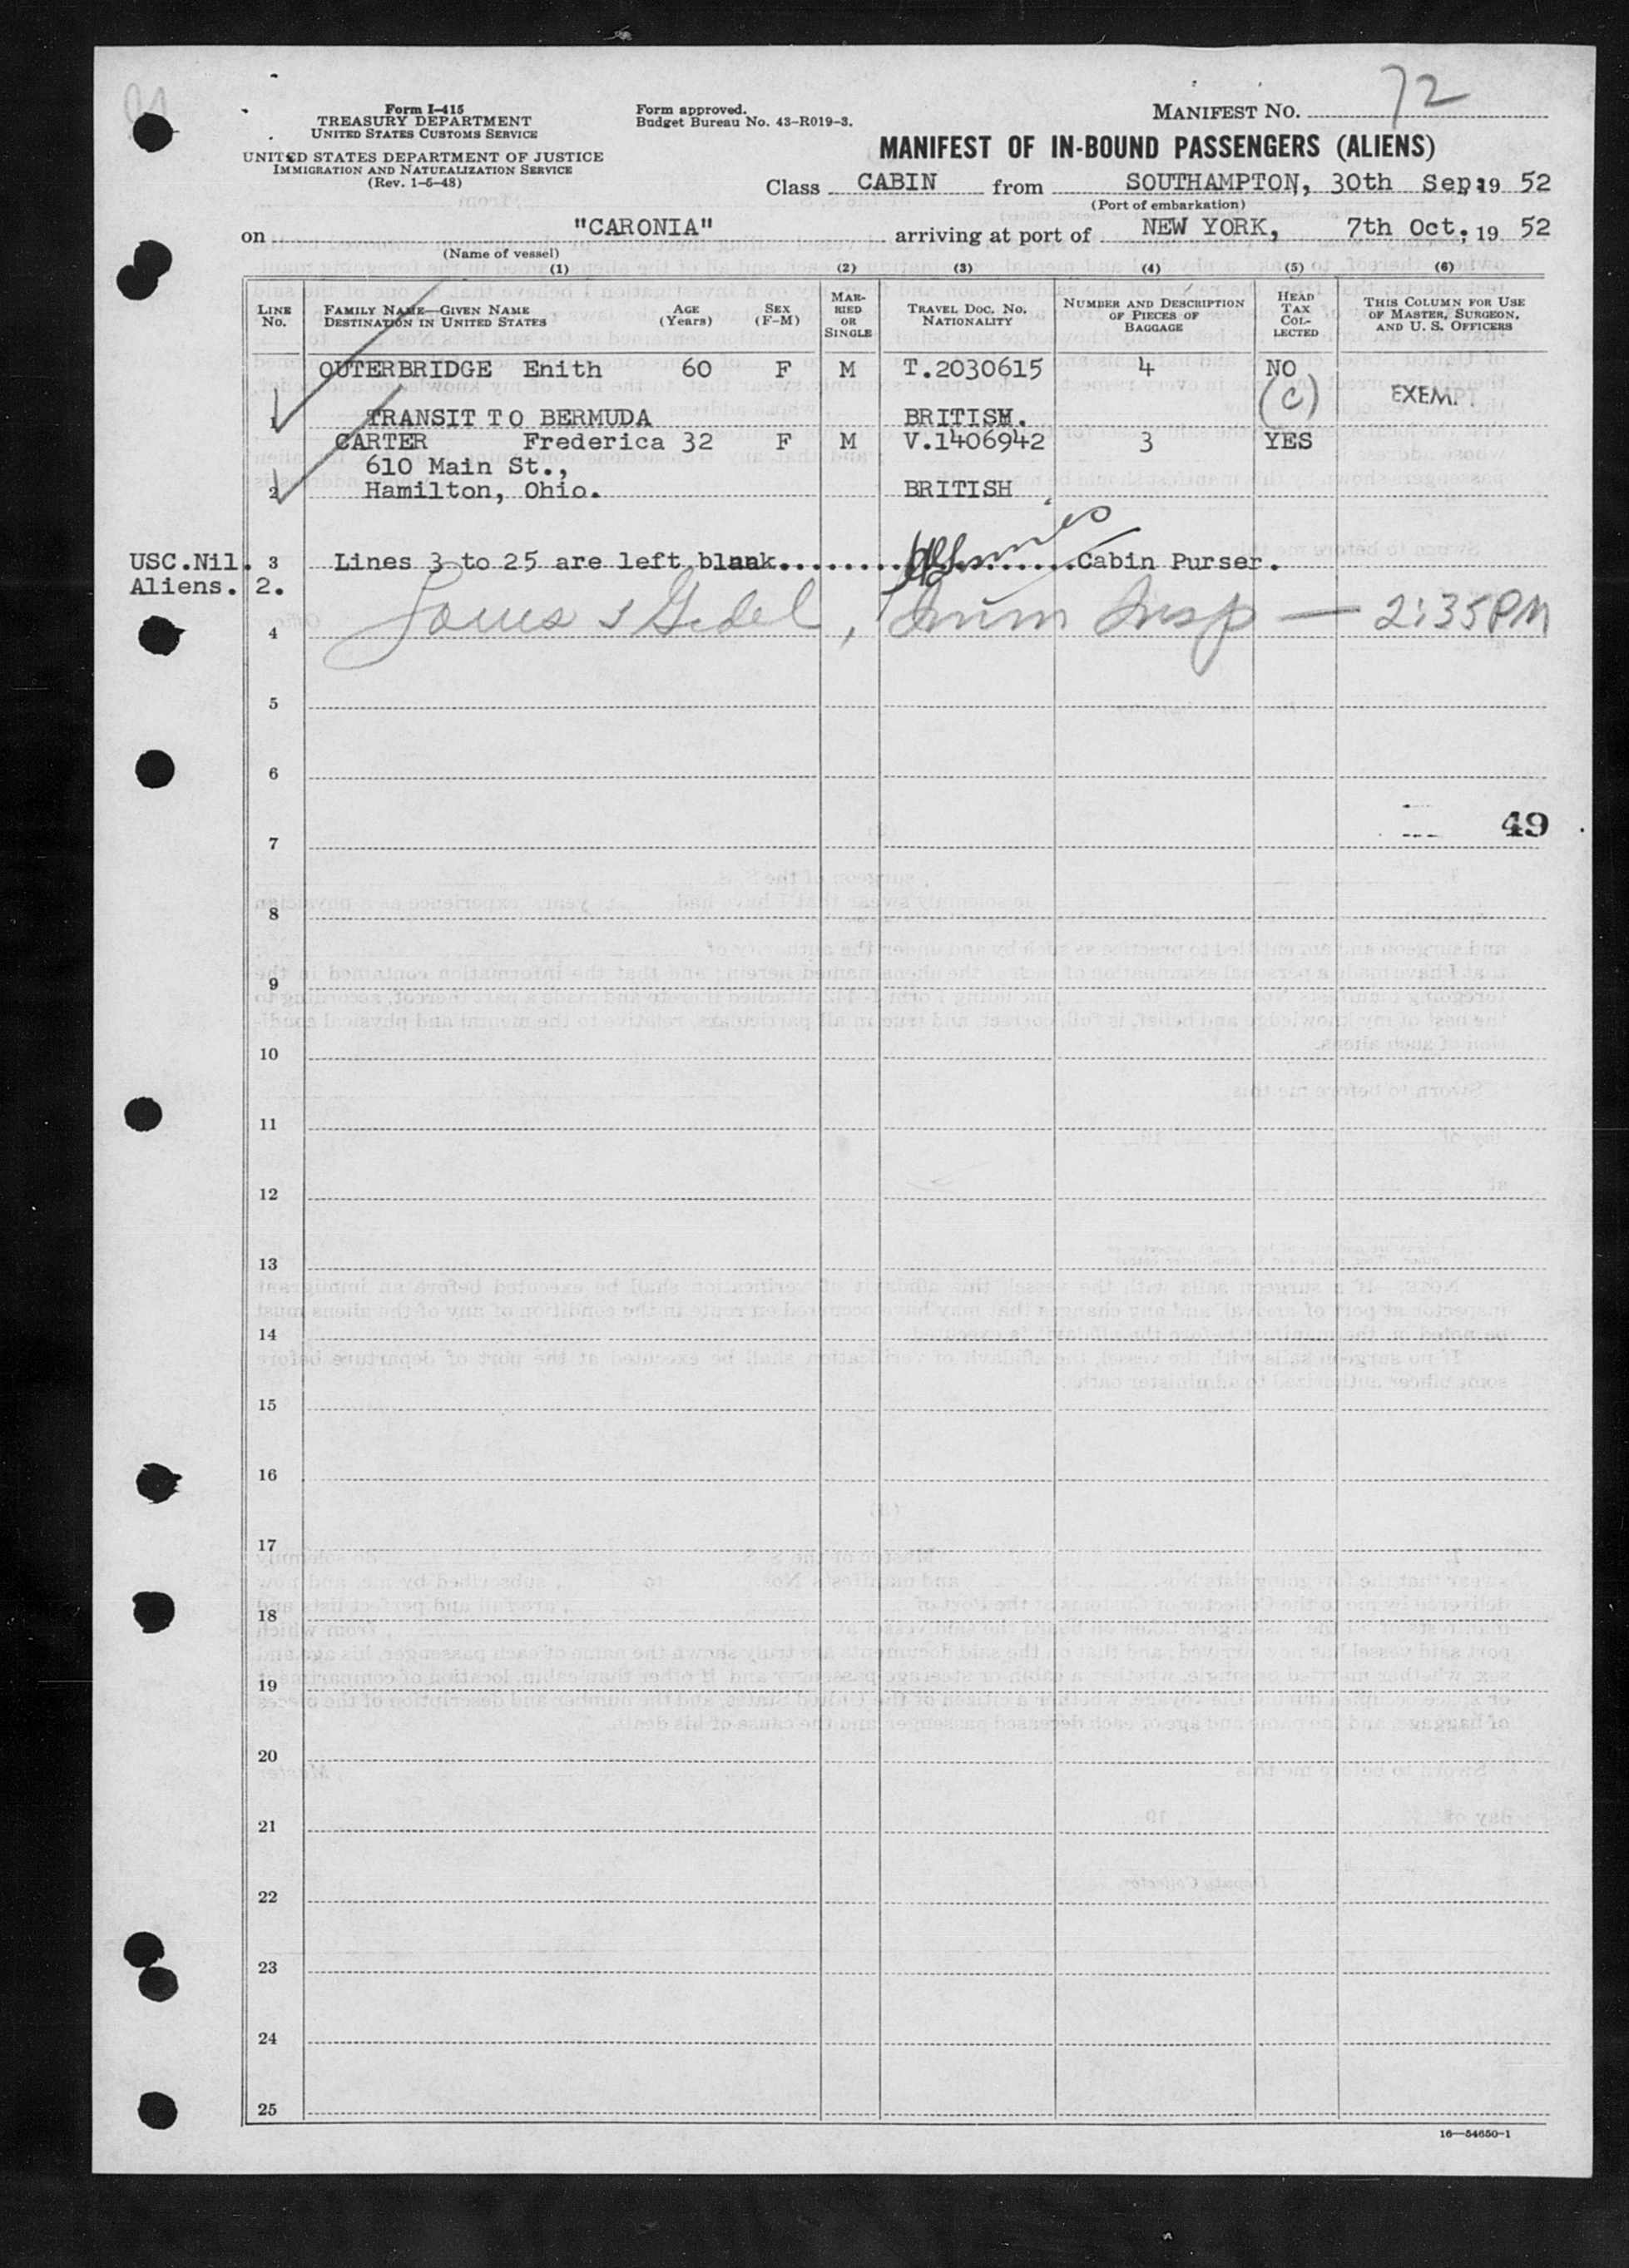 Form I-415
TREASURY DEPARTMENT
UNITED STATES CUSTOMS SERVICE
UNITED STATES DEPARTMENT OF JUSTICE
IMMIGRATION AND NATURALIZATION SERVICE
(Rev. 1-6-48)
Form approved.
Budget Bureau No. 43-R019-3.
MANIFEST NO. 72
MANIFEST OF IN-BOUND PASSENGERS (ALIENS)
Class CABIN from SOUTHAMPTON, 30th Sep, 19 52
(Port of embarkation)
on "CARONIA" arriving at port of NEW YORK, 7th Oct, 19 52
(Name of vessel)
(1) (2) (3) (4) (5) (6)
LINE No. FAMILY NAME—GIVEN NAME DESTINATION IN UNITED STATES AGE (Years) SEX (F-M) MARRIED OR SINGLE TRAVEL DOC. NO. NATIONALITY NUMBER AND DESCRIPTION OF PIECES OF BAGGAGE HEAD TAX COLLECTED THIS COLUMN FOR USE OF MASTER, SURGEON, AND U. S. OFFICERS
OUTERBRIDGE Enith 60 F M T.2030615 4 NO
(C) EXEMPT
1 TRANSIT TO BERMUDA BRITISH.
CARTER Frederica 32 F M V.1406942 3 YES
610 Main St.,
2 Hamilton, Ohio. BRITISH
USC.Nil. 3 Lines 3 to 25 are left blank. Cabin Purser.
Aliens. 2.
4 Immn Insp — 2:35 PM
5
6
49
7
8
9
10
11
12
13
14
15
16
17
18
19
20
21
22
23
24
25
16—54650-1